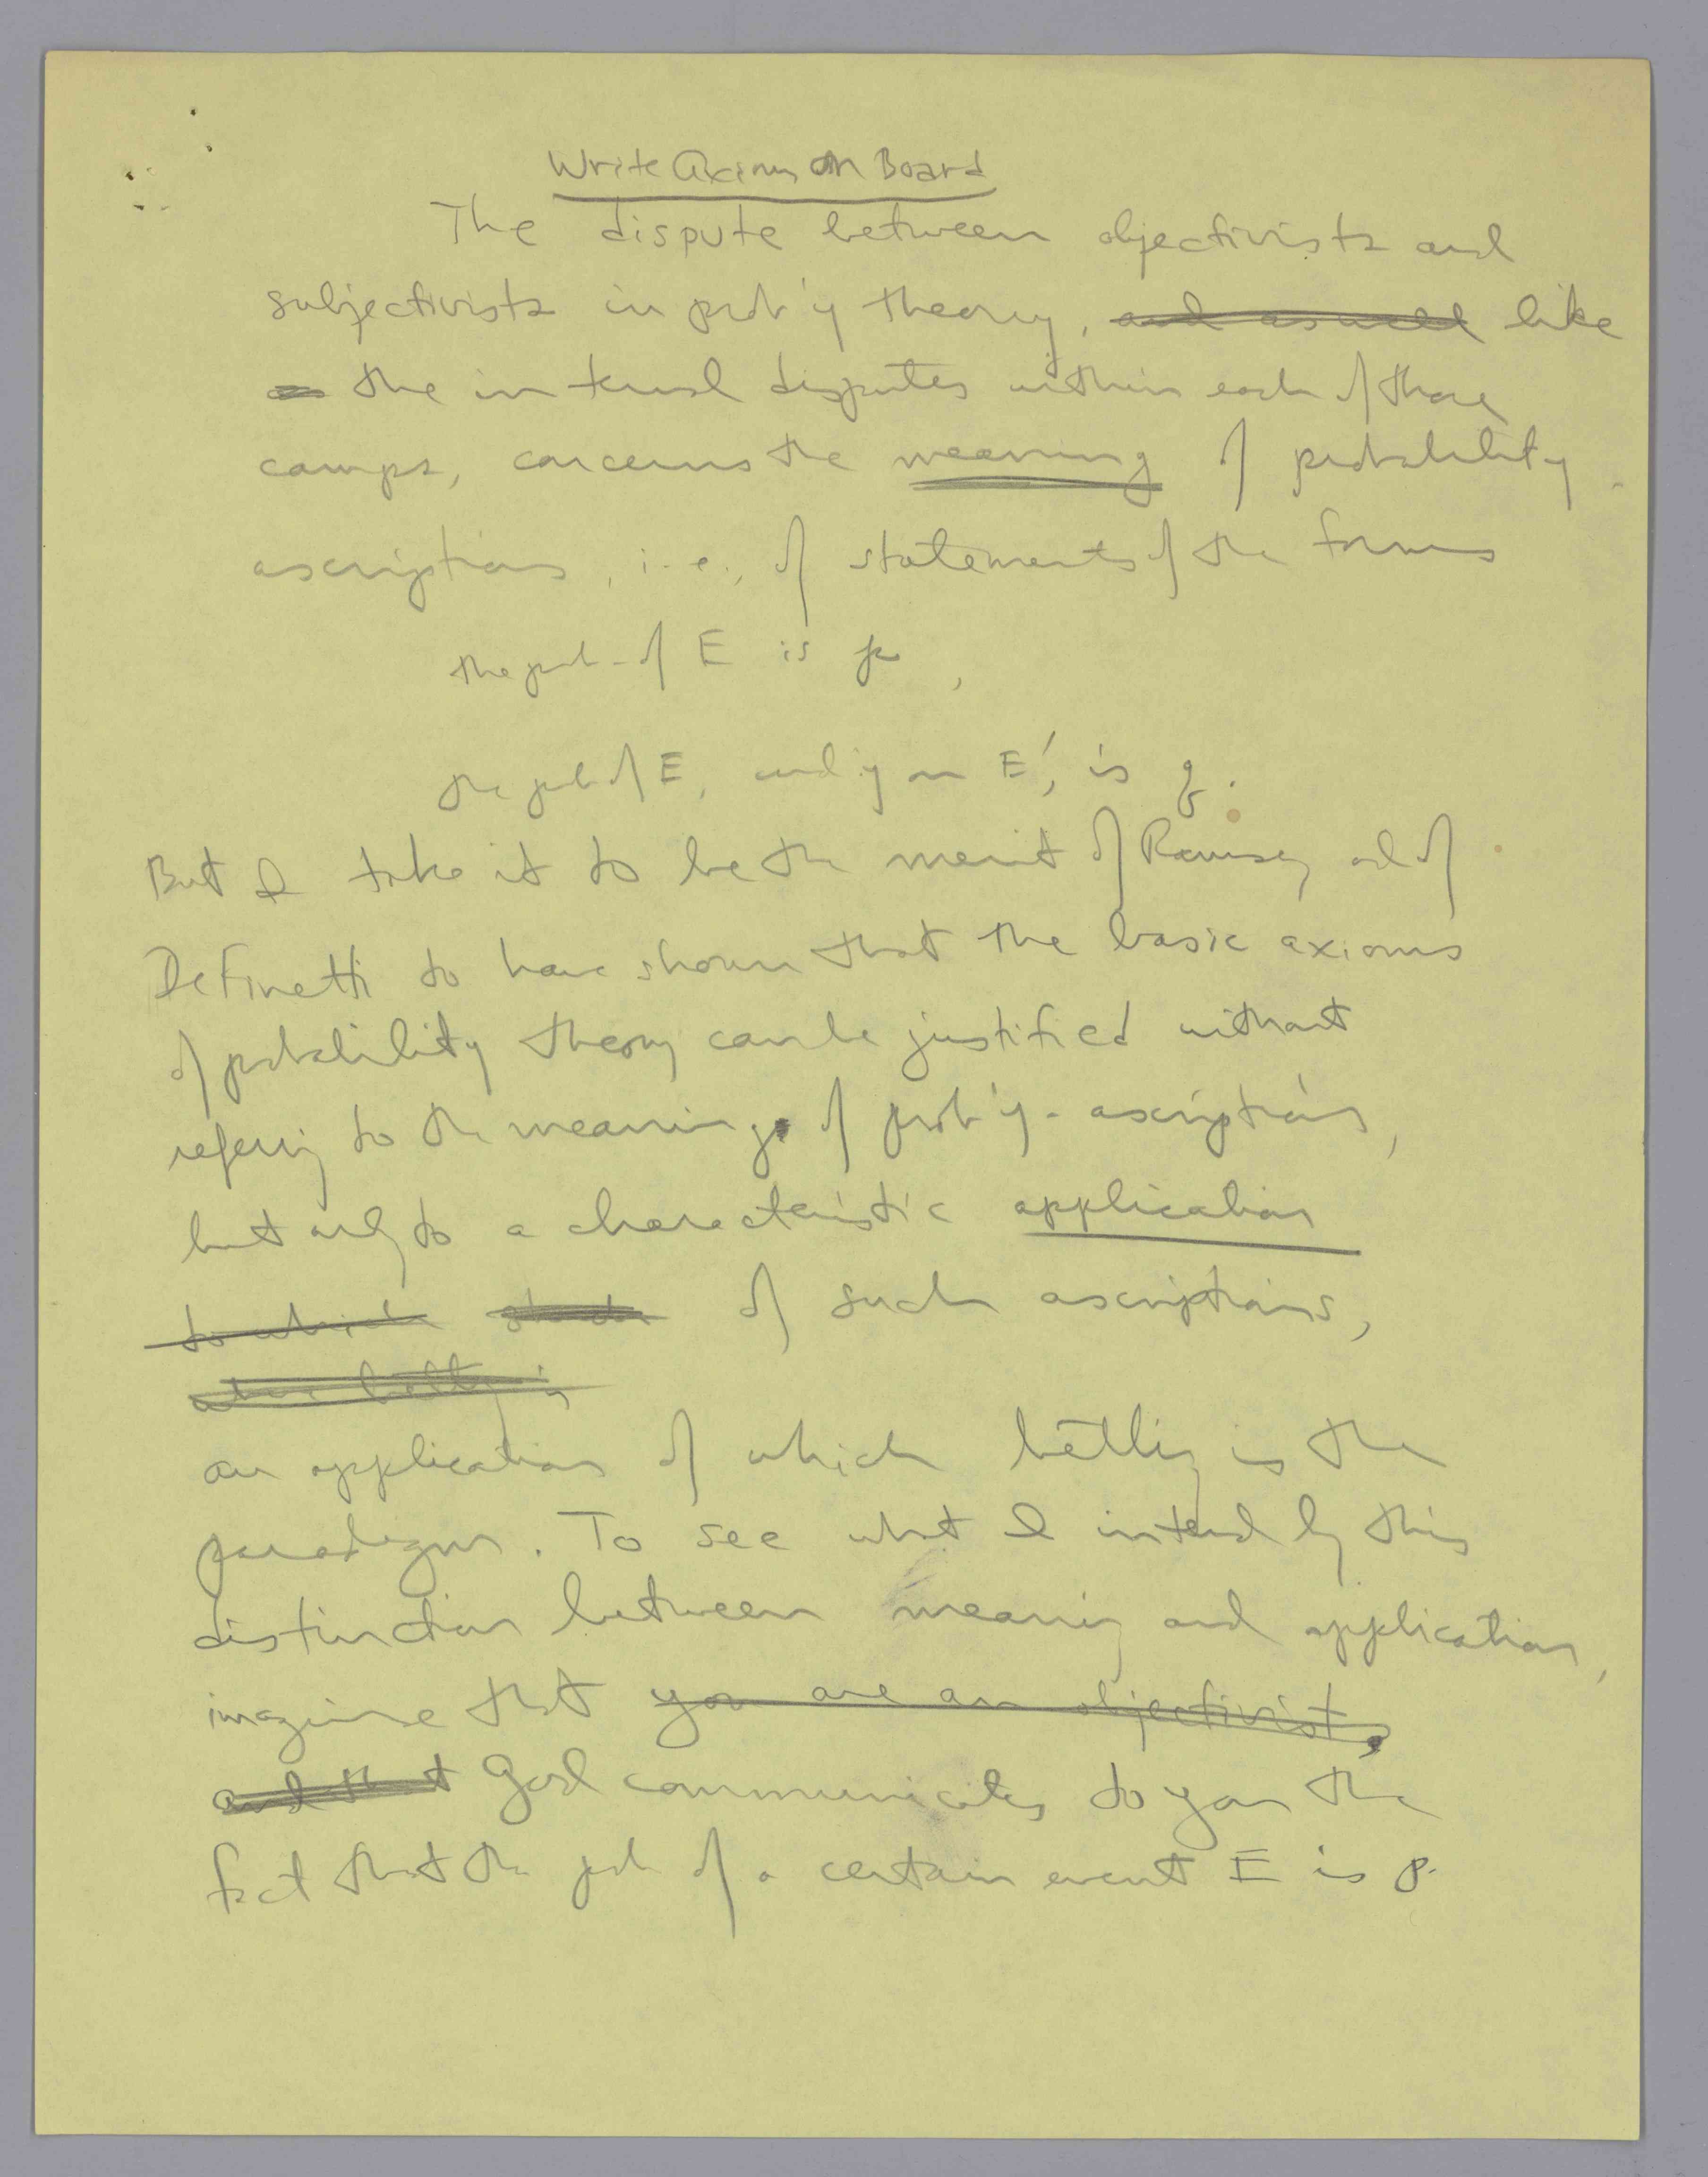 Write Axioms on Board
The dispute between objectivists and
subjectivists in prob'y theory, and as well like
as the internal disputes within each of those
camps, concerns the meaning of probability
ascriptions, i.e., of statements of the forms
the prob. of E is p,
the prob of E, cond'y on E', is q.
But I take it to be the merit of Ramsey and of
DeFinetti to have shown that the basic axioms
of probability theory can be justified without
referring to the meaning of prob'y-ascriptions,
but only to a characteristic application
to which of such ascriptions,
betting is
an application of which betting is the
paradigm. To see what I intend by this
distinction between meaning and application,
imagine that you are an objectivist,
and that God communicates to you the
fact that the prob of a certain event E is p.